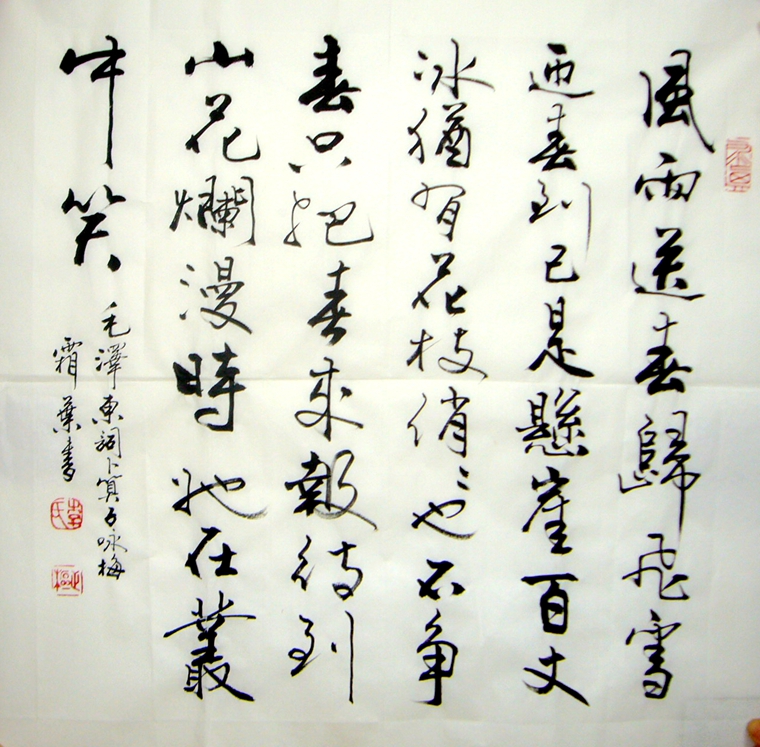 風雨送春歸飛雪
迎春到已是懸崖百丈
冰猶有花枝俏〻也不争
春只把春來報待到
山花爛漫時她在叢
中笑
毛澤東詞卜算子咏梅
霜葉書